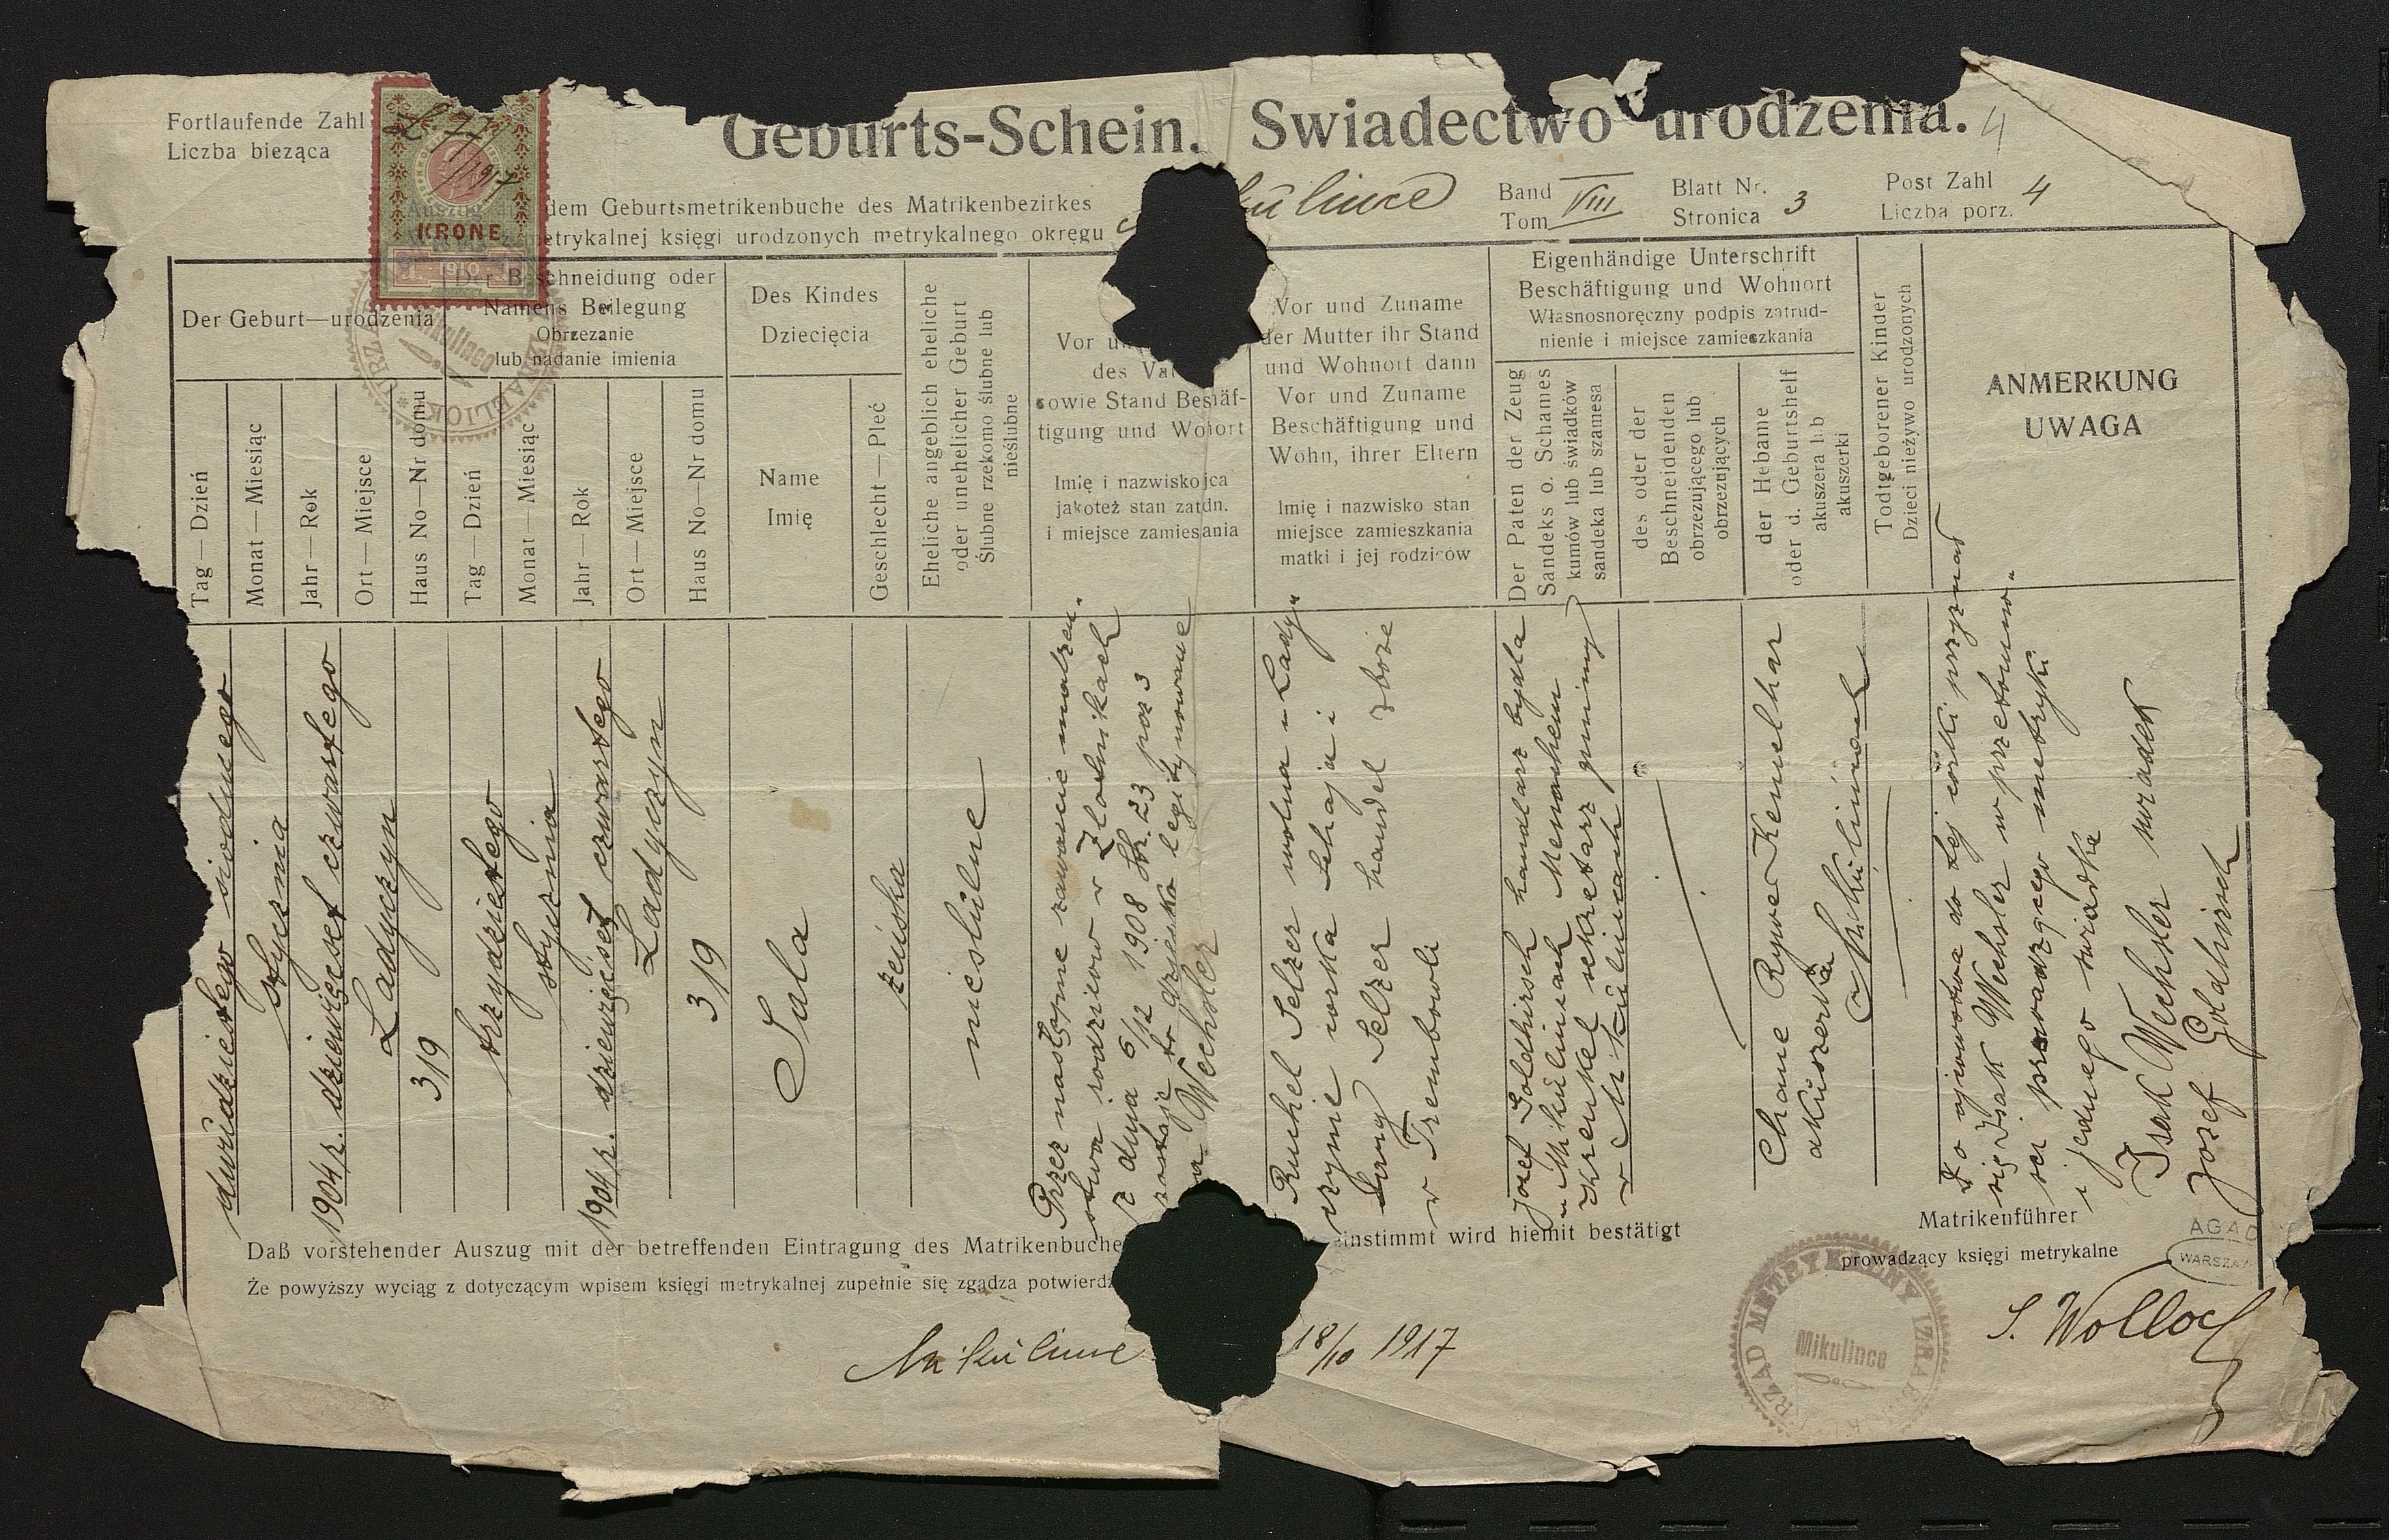 Geburts-Schein. Swiadectwo urodzenia. 4
Fortlaufende Zahl
Liczba bieząca
1917
KRONE
1910
dem Geburtsmetrikenbuche des Matrikenbezirkes
etrykalnej księgi urodzonych metrykalnego okręgu
kulince
Band
Tom VIII
Blatt Nr.
Stronica 3
Post Zahl
Liczba porz. 4
Der Geburt—urodzenia
Der Beschneidung oder
Namens Beilegung
Obrzezanie
lub nadanie imienia
Des Kindes
Dziecięcia
Tag—Dzień
Monat—Miesiąc
Jahr—Rok
Ort—Miejsce
Haus No—Nr domu
Tag—Dzień
Monat—Miesiąc
Jahr—Rok
Ort—Miejsce
Haus No—Nr domu
Name
Imię
Geschlecht—Pleć
Eheliche angeblich eheliche
oder unehelicher Geburt
Ślubne rzekomo ślubne lub
nieślubne
Vor u
des Va
sowie Stand Besiäf-
tigung und Wohort
Imię i nazwisko jca
jakoteż stan zatdn.
i miejsce zamiesania
Vor und Zuname
der Mutter ihr Stand
und Wohnort dann
Vor und Zuname
Beschäftigung und
Wohn, ihrer Eltern
Imię i nazwisko stan
miejsce zamieszkania
matki i jej rodziców
Eigenhändige Unterschrift
Beschäftigung und Wohnort
Własnosnoręczny podpis zatrud-
nienie i miejsce zamieszkania
Der Paten der Zeug
Sandeks o. Schames
kumów lub świadków
sandeka lub szamesa
des oder der
Beschneidenden
obrzezującego lub
obrzezujących
der Hebame
oder d. Geburtshelf
akuszera lub
akuszerki
Todtgeborener Kinder
Dzieci nieżywo urodzonych
ANMERKUNG
UWAGA
dwudziestego siodmego
stycznia
1904 r. dziewięćset czwartego
Ladyczyn
319
trzydziestego
stycznia
1904 r. dziewięćset czwartego
Ladyczyn
319
Sala
żeńska
nieślubne
Przez następne zawarcie małżeń-
stwa rodziców w Zlotnikach
z dnia 6/12 1908 Str. 23 poz 3
zostaje to dziecko legitymowane
Wechsler
Ruchel Selzer wolna w Lady-
czynie córka Schaja i
Selzer handel zboże
w Trembowli
Josef Goldhirsch handlarz bydla
w Mikulincach Menachem
Krenkel sekretarz gminny
w Mikulincach
Chane Rywe Kemelhar
akuszerka
w Mikulincach
Do ojcowstwa do tej córki przyznał
się Izak Wechsler w przetomno-
sci prowadzącego metryki
i jednego swiadka
Isak Wechsler
Josef Goldhirsch swiadek
Daß vorstehender Auszug mit der betreffenden Eintragung des Matrikenbuche
einstimmt wird hiemit bestätigt
Że powyższy wyciąg z dotyczącym wpisem księgi metrykalnej zupełnie się zgadza potwierdz
Mikulince 18/10 1917
Matrikenführer
prowadzący księgi metrykalne
S. Wolloch
URZĄD METRYKALNY IZRAE
Mikulince
AGAD
WARSZA